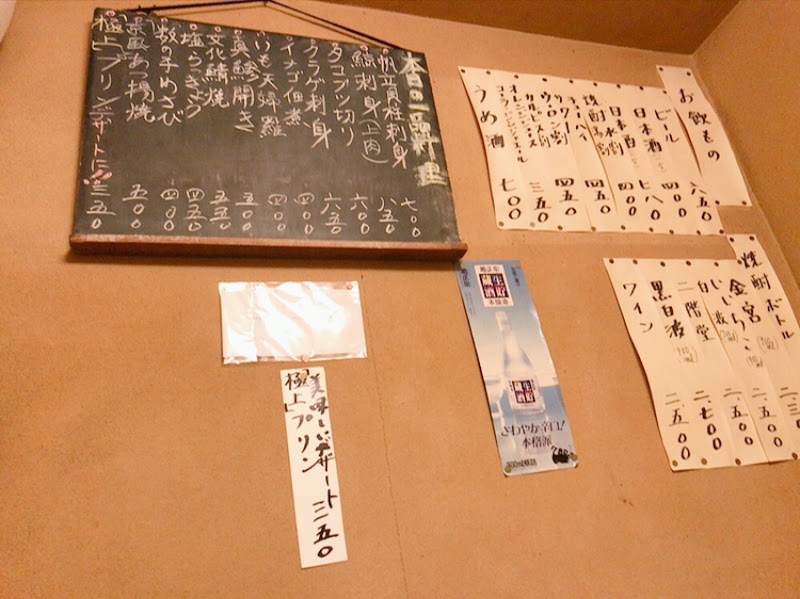 本日の一品料理
帆立貝柱刺身 七〇〇
鯨刺身(上肉) 八五〇
タコブツ切り 六〇〇
クラゲ刺身 六五〇
イナゴ佃煮 四〇〇
いも天婦羅 四〇〇
真鯵開き 五〇〇
文化鯖焼 五五〇
塩らきょう 四五〇
数の子わさび 四〇〇
京風あつ揚焼 五〇〇
極上プリン デザートに!! 三五〇
お飲もの
ビール 六五〇
日本酒 四〇〇
日本酒 七八〇
焼酎水割 四〇〇
チューハイ 四五〇
サワー
ウーロン割 四五〇
カルピス
オレンジジュース 三五〇
うめ酒 七〇〇
焼酎ボトル
金宮
いいちこ 二、五〇〇
二階堂 二、七〇〇
黒白波
ワイン 二、五〇〇
生貯蔵酒
本醸造
さわやか辛口!
本格派
300ml瓶詰
美味しいデザート
極上プリン 三五〇